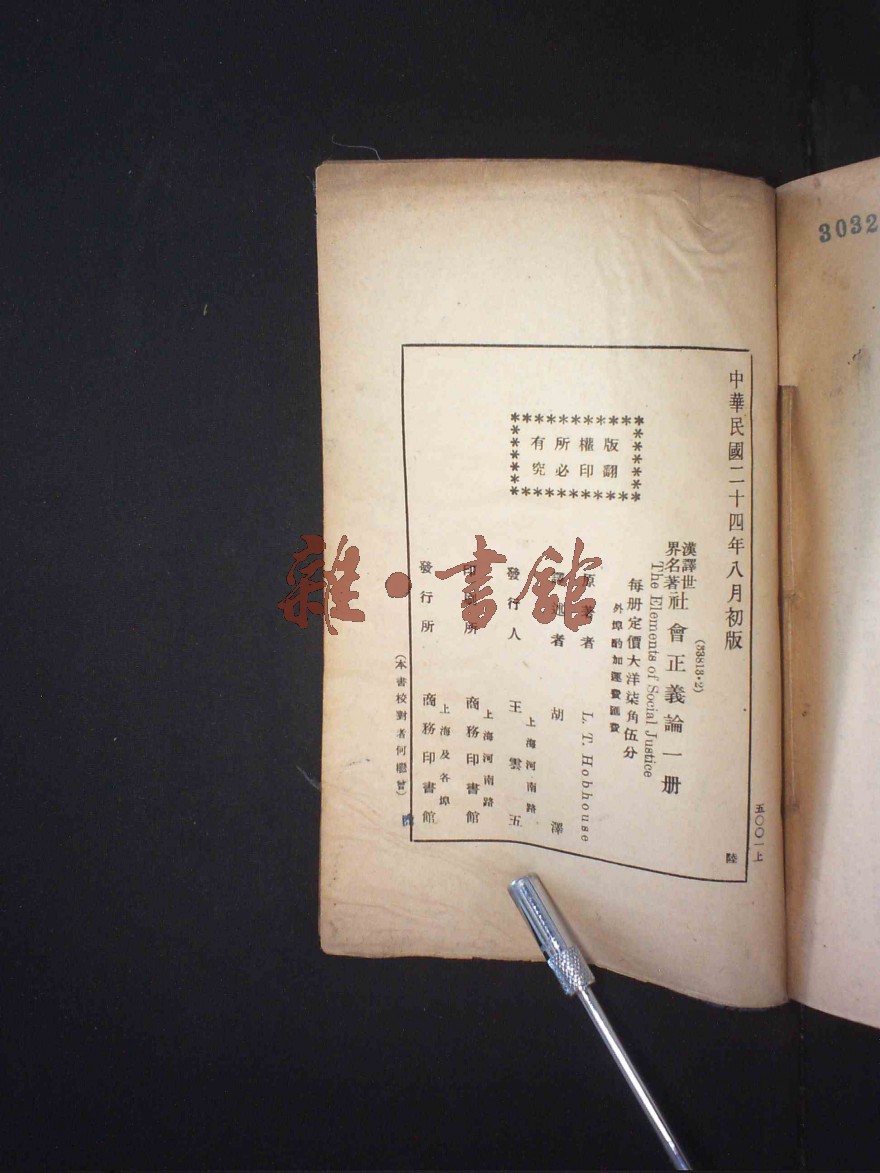 3032
中華民國二十四年八月初版
五〇〇一上
陸
(33813·2)
漢譯世界名著
社會正義論一册
The Elements of Social Justice
每册定價大洋柒角伍分
外埠酌加運費匯費
版權所有
翻印必究
原著者 L. T. Hobhouse
譯述者 胡澤
上海河南路
發行人 王雲五
上海河南路
印刷所 商務印書館
上海及各埠
發行所 商務印書館
(本書校對者何
雜·書館